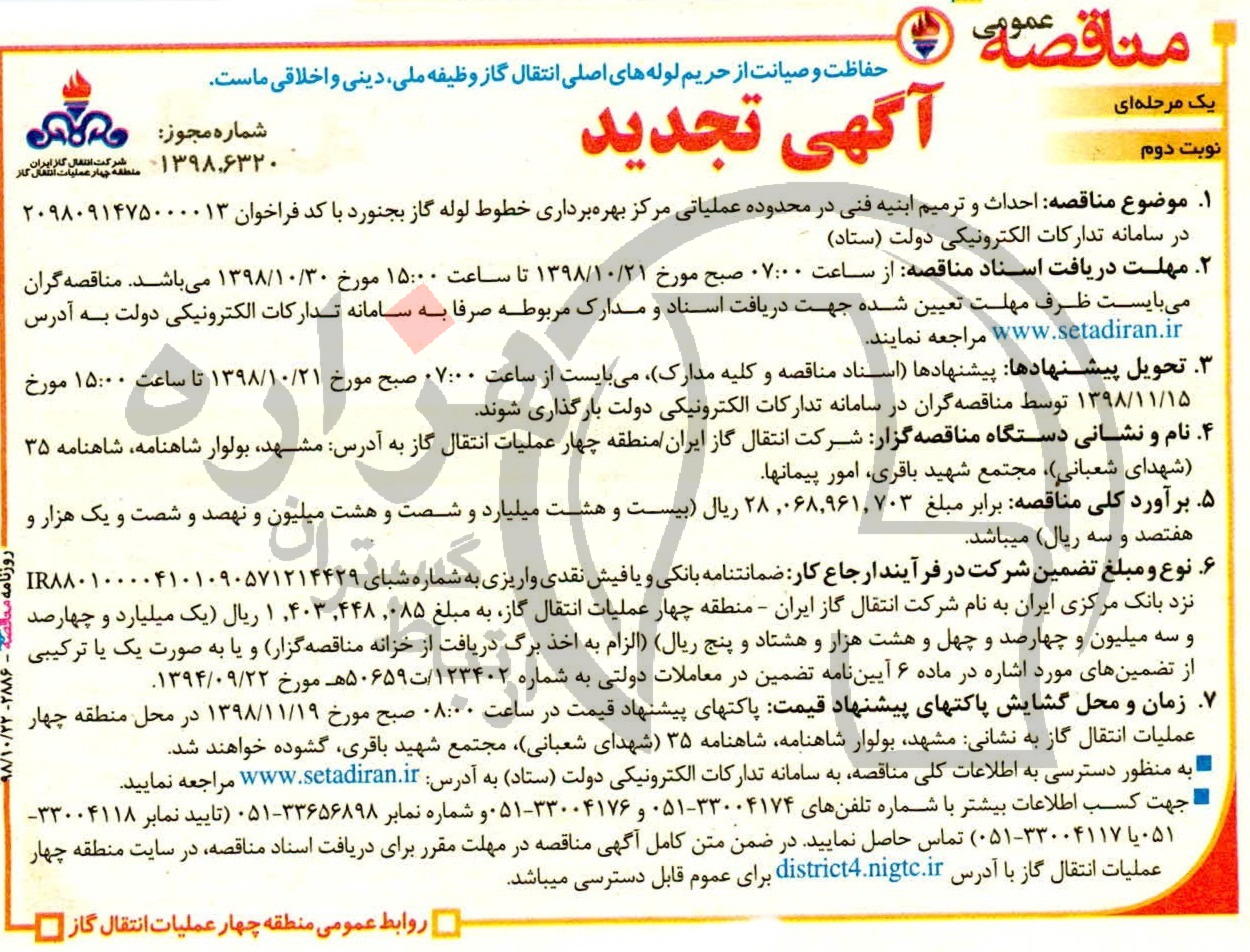 مناقصه عمومی
یک مرحله‌ای
نوبت دوم
حفاظت و صیانت از حریم لوله‌های اصلی انتقال گاز وظیفه ملی، دینی و اخلاقی ماست.
آگهی تجدید
شماره مجوز:
۱۳۹۸,۶۳۲۰
شرکت انتقال گاز ایران
منطقه چهار عملیات انتقال گاز
۱. موضوع مناقصه: احداث و ترمیم ابنیه فنی در محدوده عملیاتی مرکز بهره‌برداری خطوط لوله گاز بجنورد با کد فراخوان ۲۰۹۸۰۹۱۴۷۵۰۰۰۰۱۳
در سامانه تدارکات الکترونیکی دولت (ستاد)
۲. مهلت دریافت اسناد مناقصه: از ساعت ۰۷:۰۰ صبح مورخ ۱۳۹۸/۱۰/۲۱ تا ساعت ۱۵:۰۰ مورخ ۱۳۹۸/۱۰/۳۰ می‌باشد. مناقصه‌گران
می‌بایست ظرف مهلت تعیین شده جهت دریافت اسناد و مدارک مربوطه صرفا به سامانه تدارکات الکترونیکی دولت به آدرس
www.setadiran.ir مراجعه نمایند.
۳. تحویل پیشنهادها: پیشنهادها (اسناد مناقصه و کلیه مدارک)، می‌بایست از ساعت ۰۷:۰۰ صبح مورخ ۱۳۹۸/۱۰/۲۱ تا ساعت ۱۵:۰۰ مورخ
۱۳۹۸/۱۱/۱۵ توسط مناقصه‌گران در سامانه تدارکات الکترونیکی دولت بارگذاری شوند.
۴. نام و نشانی دستگاه مناقصه‌گزار: شرکت انتقال گاز ایران/منطقه چهار عملیات انتقال گاز به آدرس: مشهد، بولوار شاهنامه، شاهنامه ۳۵
(شهدای شعبانی)، مجتمع شهید باقری، امور پیمانها.
۵. برآورد کلی مناقصه: برابر مبلغ ۲۸,۰۶۸,۹۶۱,۷۰۳ ریال (بیست و هشت میلیارد و شصت و هشت میلیون و نهصد و شصت و یک هزار و
هفتصد و سه ریال) میباشد.
۶. نوع و مبلغ تضمین شرکت در فرآیند ارجاع کار: ضمانتنامه بانکی و یا فیش نقدی واریزی به شماره شبای IR۸۸۰۱۰۰۰۰۴۱۰۱۰۹۰۵۷۱۲۱۴۴۲۹
نزد بانک مرکزی ایران به نام شرکت انتقال گاز ایران - منطقه چهار عملیات انتقال گاز، به مبلغ ۱,۴۰۳,۴۴۸,۰۸۵ ریال (یک میلیارد و چهارصد
و سه میلیون و چهارصد و چهل و هشت هزار و هشتاد و پنج ریال) (الزام به اخذ برگ دریافت از خزانه مناقصه‌گزار) و یا به صورت یک یا ترکیبی
از تضمین‌های مورد اشاره در ماده ۶ آیین‌نامه تضمین در معاملات دولتی به شماره ۱۲۳۴۰۲/ت۵۰۶۵۹هـ مورخ ۱۳۹۴/۰۹/۲۲.
۷. زمان و محل گشایش پاکتهای پیشنهاد قیمت: پاکتهای پیشنهاد قیمت در ساعت ۰۸:۰۰ صبح مورخ ۱۳۹۸/۱۱/۱۹ در محل منطقه چهار
عملیات انتقال گاز به نشانی: مشهد، بولوار شاهنامه، شاهنامه ۳۵ (شهدای شعبانی)، مجتمع شهید باقری، گشوده خواهند شد.
به منظور دسترسی به اطلاعات کلی مناقصه، به سامانه تدارکات الکترونیکی دولت (ستاد) به آدرس: www.setadiran.ir مراجعه نمایید.
جهت کسب اطلاعات بیشتر با شماره تلفن‌های ۳۳۰۰۴۱۷۴-۰۵۱ و ۳۳۰۰۴۱۷۶-۰۵۱ و شماره نمابر ۳۳۶۵۶۸۹۸-۰۵۱ (تایید نمابر ۳۳۰۰۴۱۱۸-
۰۵۱ یا ۳۳۰۰۴۱۱۷-۰۵۱) تماس حاصل نمایید. در ضمن متن کامل آگهی مناقصه در مهلت مقرر برای دریافت اسناد مناقصه، در سایت منطقه چهار
عملیات انتقال گاز با آدرس district4.nigtc.ir برای عموم قابل دسترسی میباشد.
روابط عمومی منطقه چهار عملیات انتقال گاز
روزنامه مناقصه - ۲۸۸۶ - ۹۸/۱۰/۲۲
هزاره
گستران
ارتباط